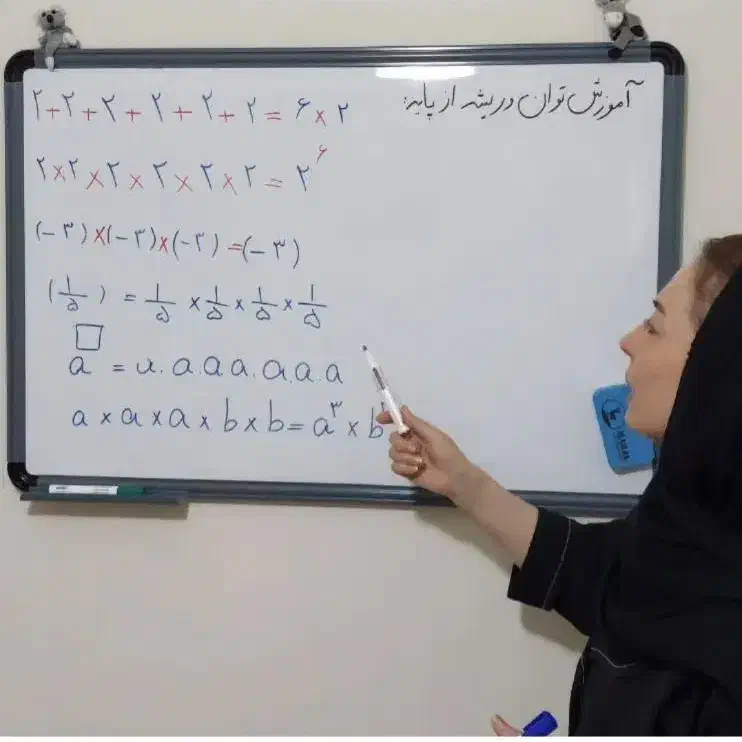 آموزش توان و ریشه از پایه:
۲+۲+۲+۲+۲+۲=۶×۲
۲×۲×۲×۲×۲×۲=۲^۶
(-۳)×(-۳)×(-۳)=(-۳)
(۱/۵) = ۱/۵ × ۱/۵ × ۱/۵ × ۱/۵
a^□ = a.a.a.a.a.a.a
a×a×a×b×b=a^۳×b